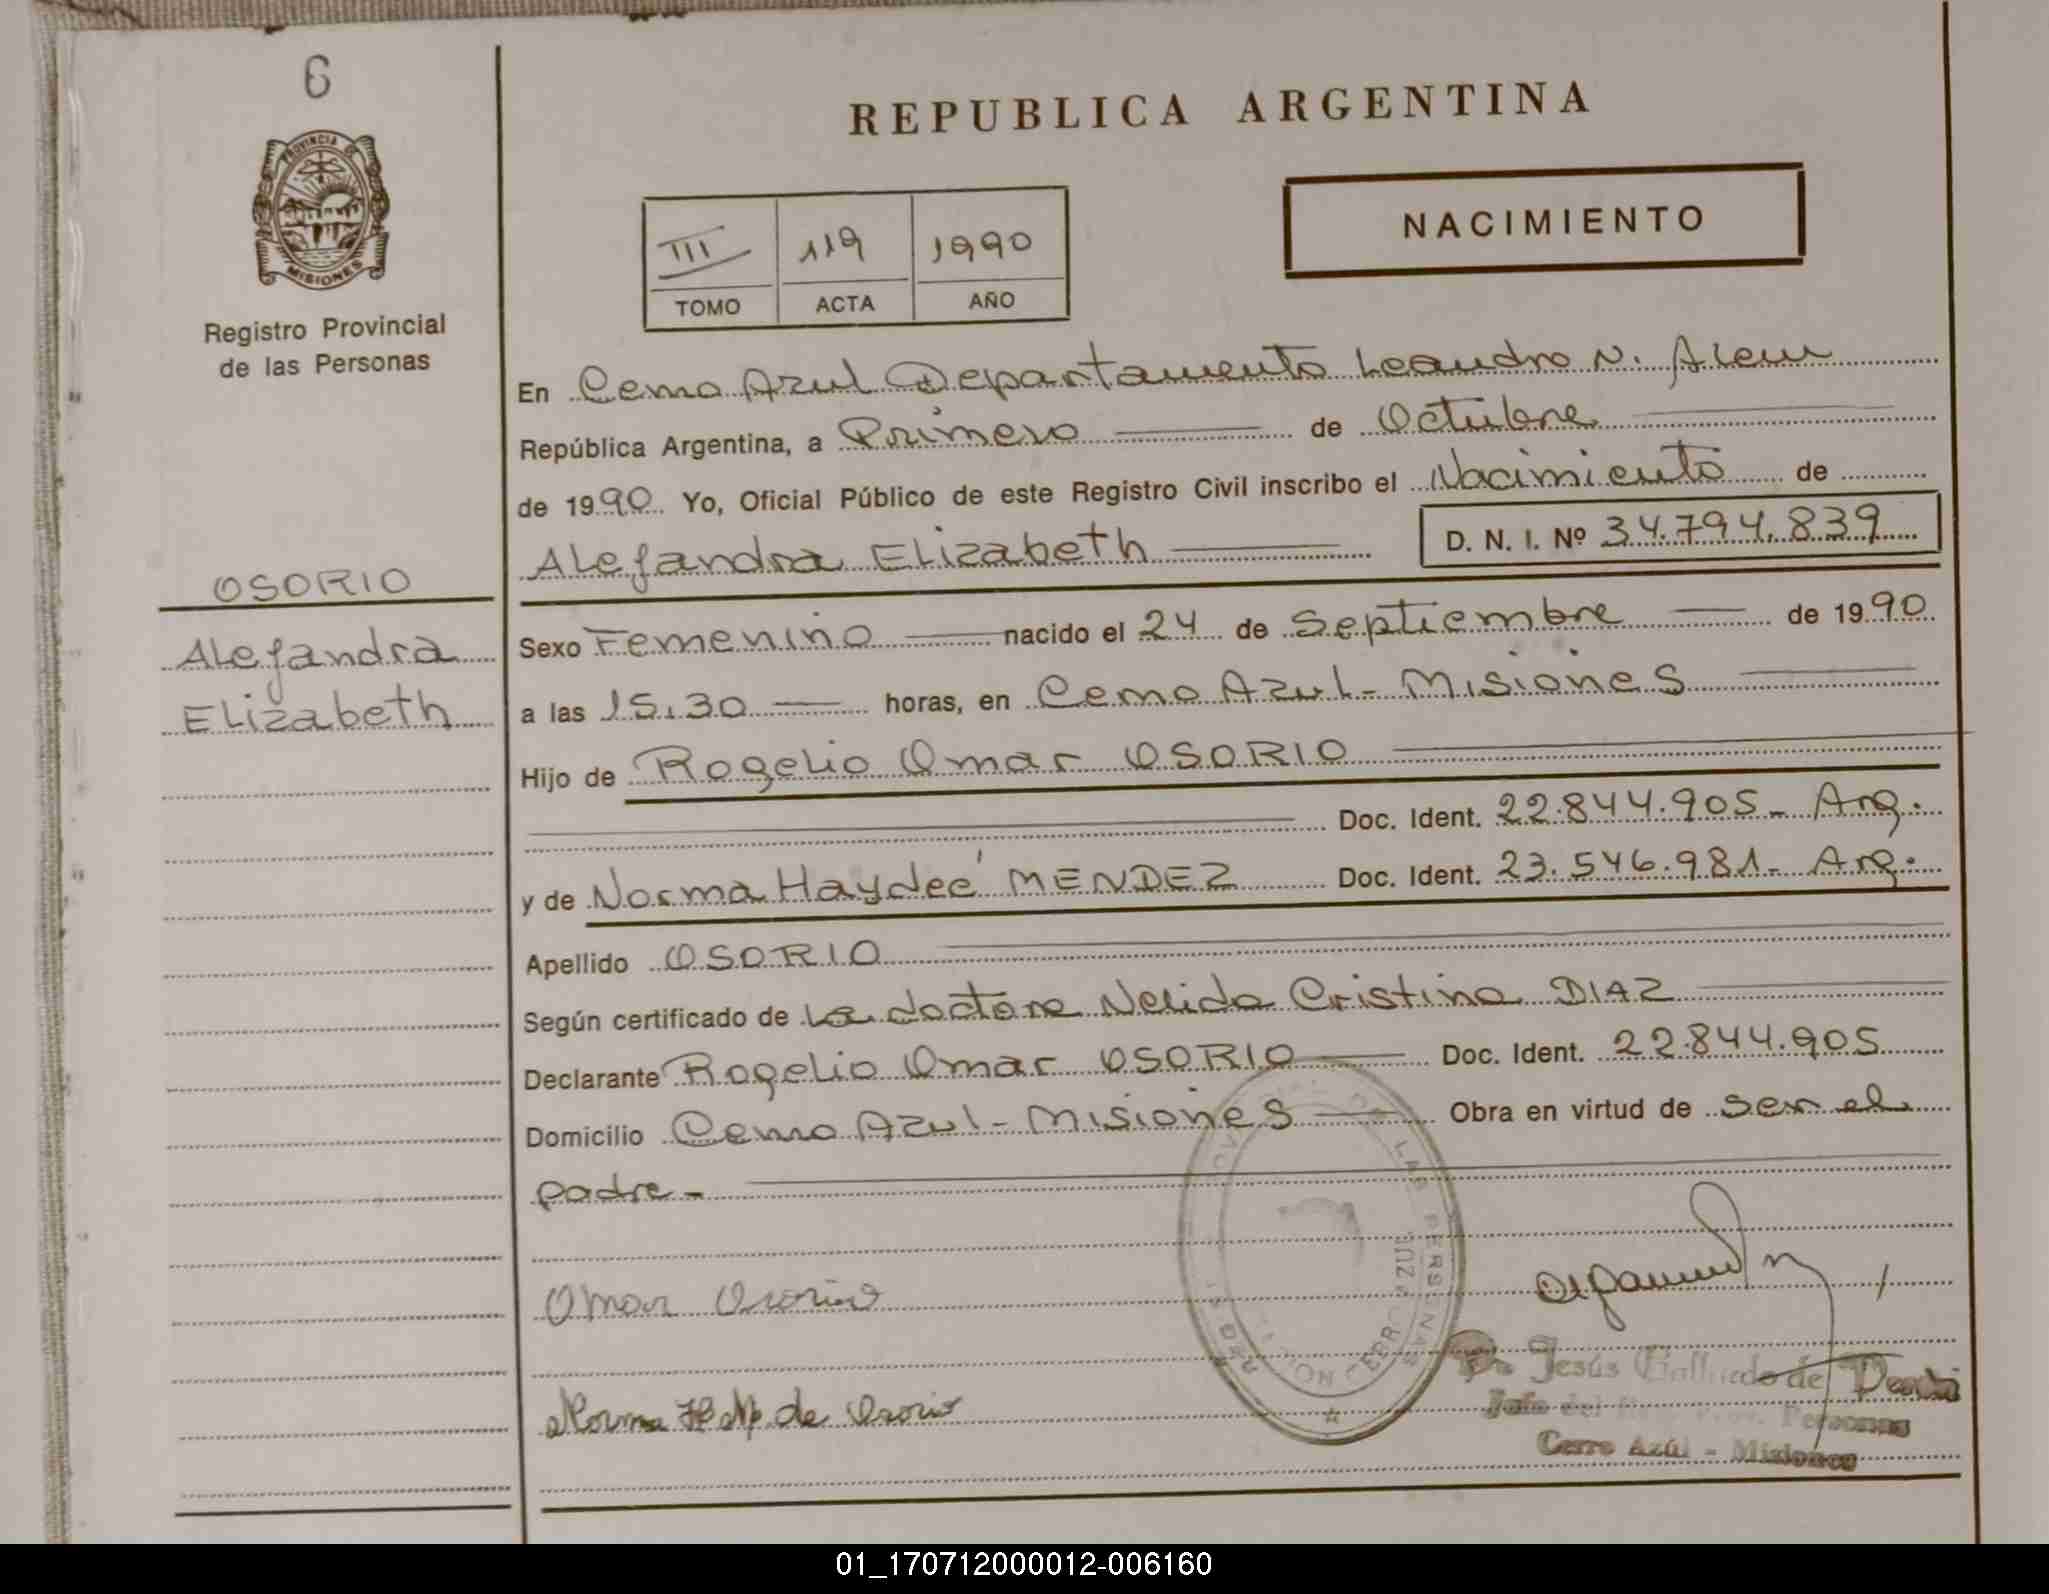 6
PROVINCIA DE
MISIONES
Registro Provincial
de las Personas
REPUBLICA ARGENTINA
NACIMIENTO
III 119 1990
TOMO ACTA AÑO
En Cerro Azul Departamento Leandro N. Alem
República Argentina, a Primero de Octubre
de 1990 Yo, Oficial Público de este Registro Civil inscribo el Nacimiento de
Alejandra Elizabeth D. N. I. Nº 34.794.839
OSORIO
Alejandra
Elizabeth
Sexo Femenino nacido el 24 de Septiembre de 1990
a las 15.30 horas, en Cerro Azul - Misiones
Hijo de Rogelio Omar OSORIO
Doc. Ident. 22.844.905 - Arg.
y de Norma Haydeé MENDEZ Doc. Ident. 23.546.981 - Arg.
Apellido OSORIO
Según certificado de La doctora Nelida Cristina DIAZ
Declarante Rogelio Omar OSORIO Doc. Ident. 22.844.905
Domicilio Cerro Azul - Misiones Obra en virtud de ser el
padre -
Omar Osorio
Norma H. M. de Osorio
DE LAS PERSONAS
CERRO AZUL
Jesús de
Jefe del Personas
Cerro Azúl - Misiones
01_170712000012-006160